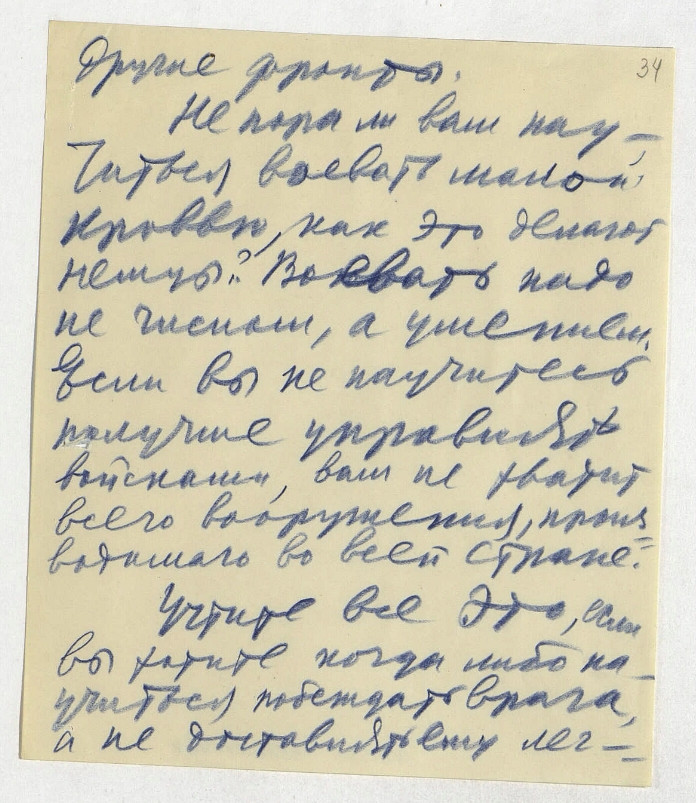 34
другие фронты.
Не пора ли вам нау-
читься воевать малой
кровью, как это делают
немцы? Воевать надо
не числом, а умением.
Если вы не научитесь
получше управлять
войсками, вам не хватит
всего вооружения, произ=
водимого во всей стране.
Учтите все это, если
вы хотите когда либо на-
учиться побеждать врага,
а не доставлять ему лег=